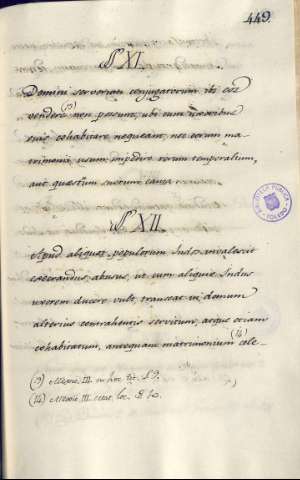 449.
§ XI.
Domini servorum conjugatorum ibi eos
vendere (13) non possunt, ubi cum uxoribus
suis cohabitare nequeant, nec eorum ma-
trimonii usum impedire rerum temporalium,
aut quæstûs
causa.
§ XII.
Apud aliquos populorum Indos invalescit
execrandus abusus, ut cum aliquis Indus
uxorem ducere vult, transeat in domum
alterius contrahentis servitum, atque etiam
cohabitatum, antequam matrimonium (14) cele-
(13) Mexic. III. in hoc tit. § 9.
(14) Mexic. III. loc. §
BIBLIOTECA PUBLICA
TOLEDO